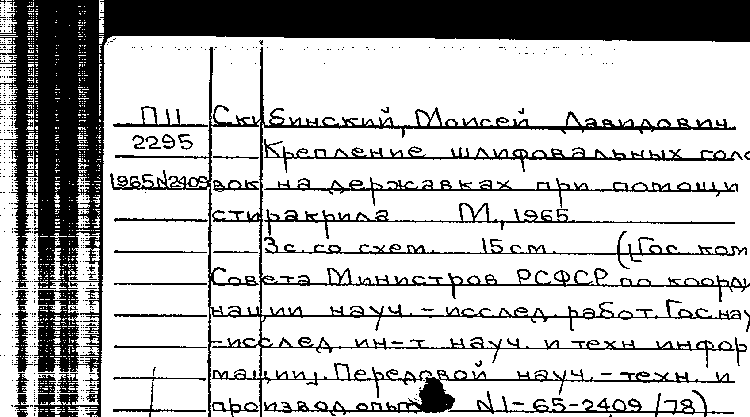 П11 Скибинский, Моисей Давидович
2295 Крепление шлифовальных голо
1965N2409 вок на державках при помощи
стиракрила М., 1965
3с. со схем. 15см. ([Гос. ком
Совета Министров РСФСР по коорди
нации науч.-исслед. работ. Гос. нау
-исслед. ин-т науч. и техн. инфор
мации]. Передовой науч.-техн. и
производ. опыт N1-65-2409/78)